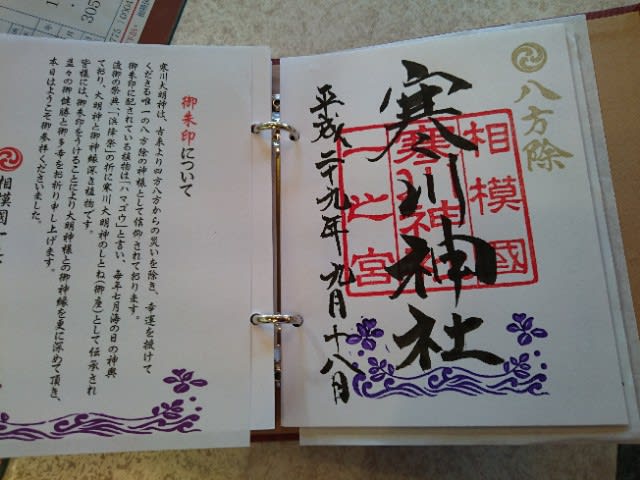 305
御朱印について
寒川大明神は、古来より四方八方からの災いを除き、幸運を授けて
くださる唯一の八方除の神様として信仰されております。
御朱印に配されている植物は「ハマゴウ」と言い、毎年七月海の日の神輿
渡御の祭典「浜降祭」の折に寒川大明神のしとね(御座)として伝承され
ており、大明神と御神縁深き植物です。
皆様には、御朱印をうけることにより大明神様との御神縁を更に深めて頂き、
益々の御健勝と御多幸をお祈り申し上げます。
本日はようこそ御参拝くださいました。
相模國一
八方除
相模國
寒川神社
一之宮
寒川神社
平成二十九年九月十八日